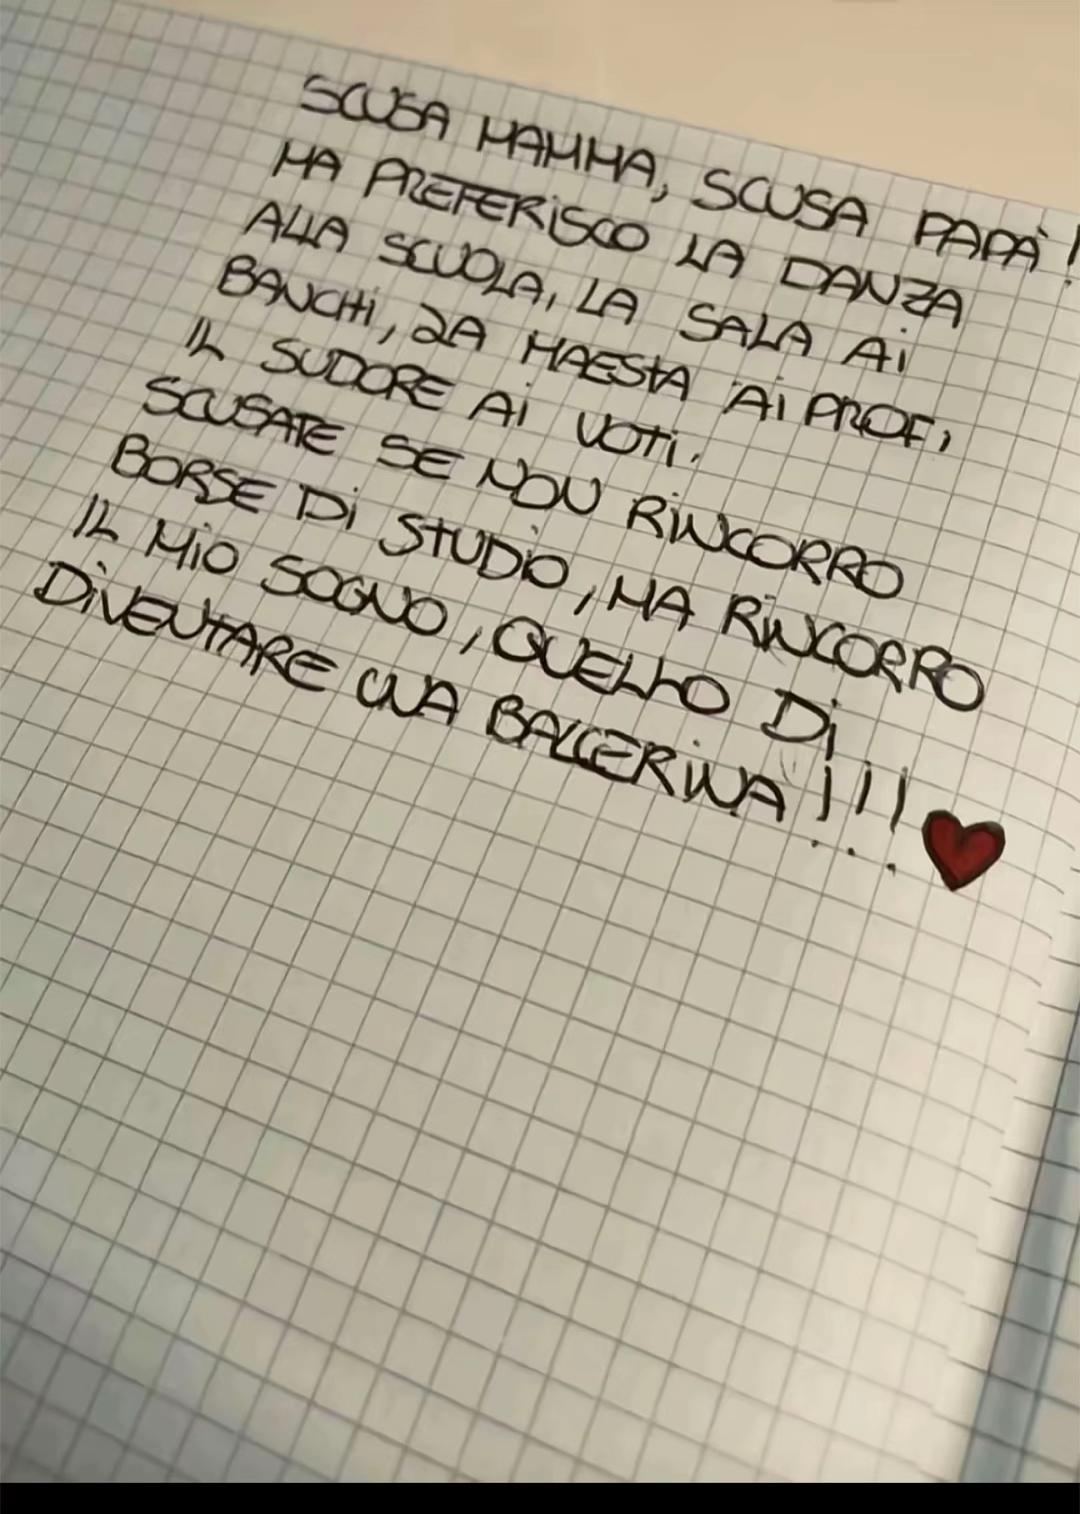 SCUSA MAMMA, SCUSA PAPÀ!
MA PREFERISCO LA DANZA
ALLA SCUOLA, LA SALA AI
BANCHI, LA MAESTA AI PROF,
IL SUDORE AI VOTI.
SCUSATE SE NON RINCORRO
BORSE DI STUDIO, MA RINCORRO
IL MIO SOGNO, QUELLO DI
DIVENTARE UNA BALLERINA!!!